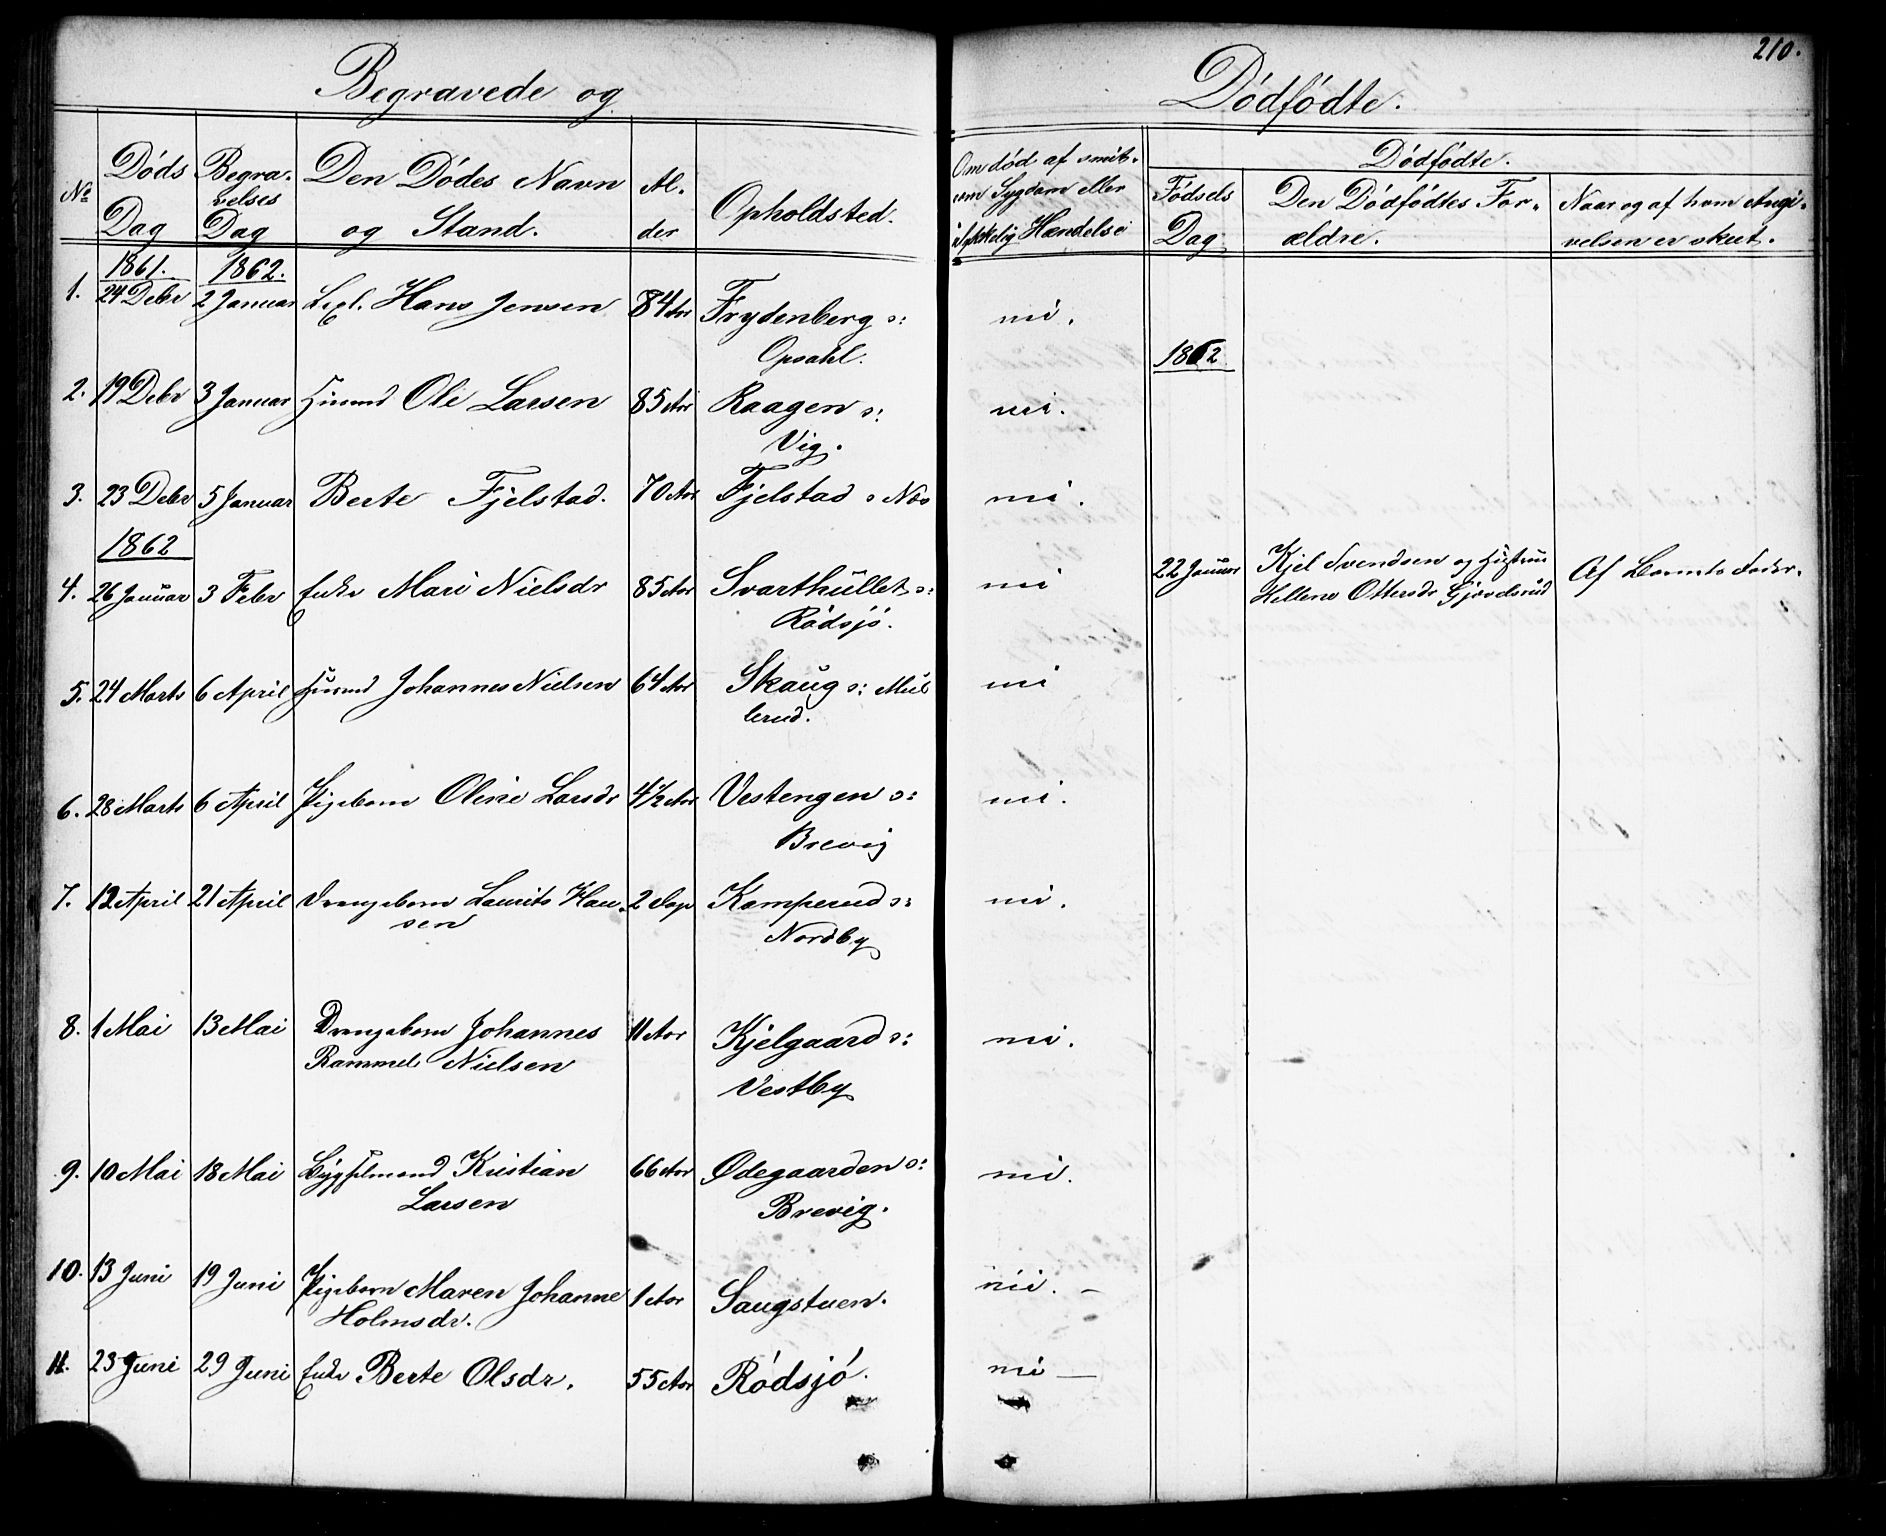 210.
Begravede og Dödfödte.
No
Döds Dag
Begravelses Dag
Den Dödes Navn og Stand.
Alder
Opholdsted.
Om död af smitsom Sygdom eller ulykkelig Hændelse
Dödfödte.
Födsels Dag
Den Dödfödtes Forældre.
Naar og af hvem Angivelsen er skeet.
1861. 1862.
1. 24 Debr 2 Januar Hans Jensen 84 Aar Frydenberg o: nei.
Opsahl.
1862
2. 19 Debr 3 Januar Husmd Ole Larsen 85 Aar Raagen o: nei.
Vig.
3. 23 Debr 5 Januar Berte Fjelstad. 70 Aar Fjelstad o Næs nei.
1862
4. 26 Januar 3 Febr Enke Mari Nielsdr 85 Aar Svarthullet o: nei 22 Januar Kjel Svendsen og Hustru Af Barnets Fader.
Rödsjö. Hellene Ottersdr Gjövelsrud
5. 24 Marts 6 April Husmd Johannes Nielsen 64 Aar Skaug o: Mel nei
lerud.
6. 28 Marts 6 April Pigebarn Oline Larsdr 4 1/2 Aar Vestengen o: nei.
Brevig
7. 12 April 21 April Drengebarn Laurits Han 2 Dage Kamperud o: nei.
sen Nordby
8. 1 Mai 13 Mai Drengebarn Johannes 11 Aar Kjelgaard o: nei.
Rammel Nielsen Vestby
9. 10 Mai 18 Mai Bygselmand Kristian 66 Aar Ødegaarden o: nei.
Larsen Brevig.
10. 13 Juni 19 Juni Pigebarn Maren Johanne 1 Aar Saugstuen. nei. –
Holmsdr.
11. 23 Juni 29 Juni Enke Berte Olsdr. 55 Aar Rödsjö. nei –